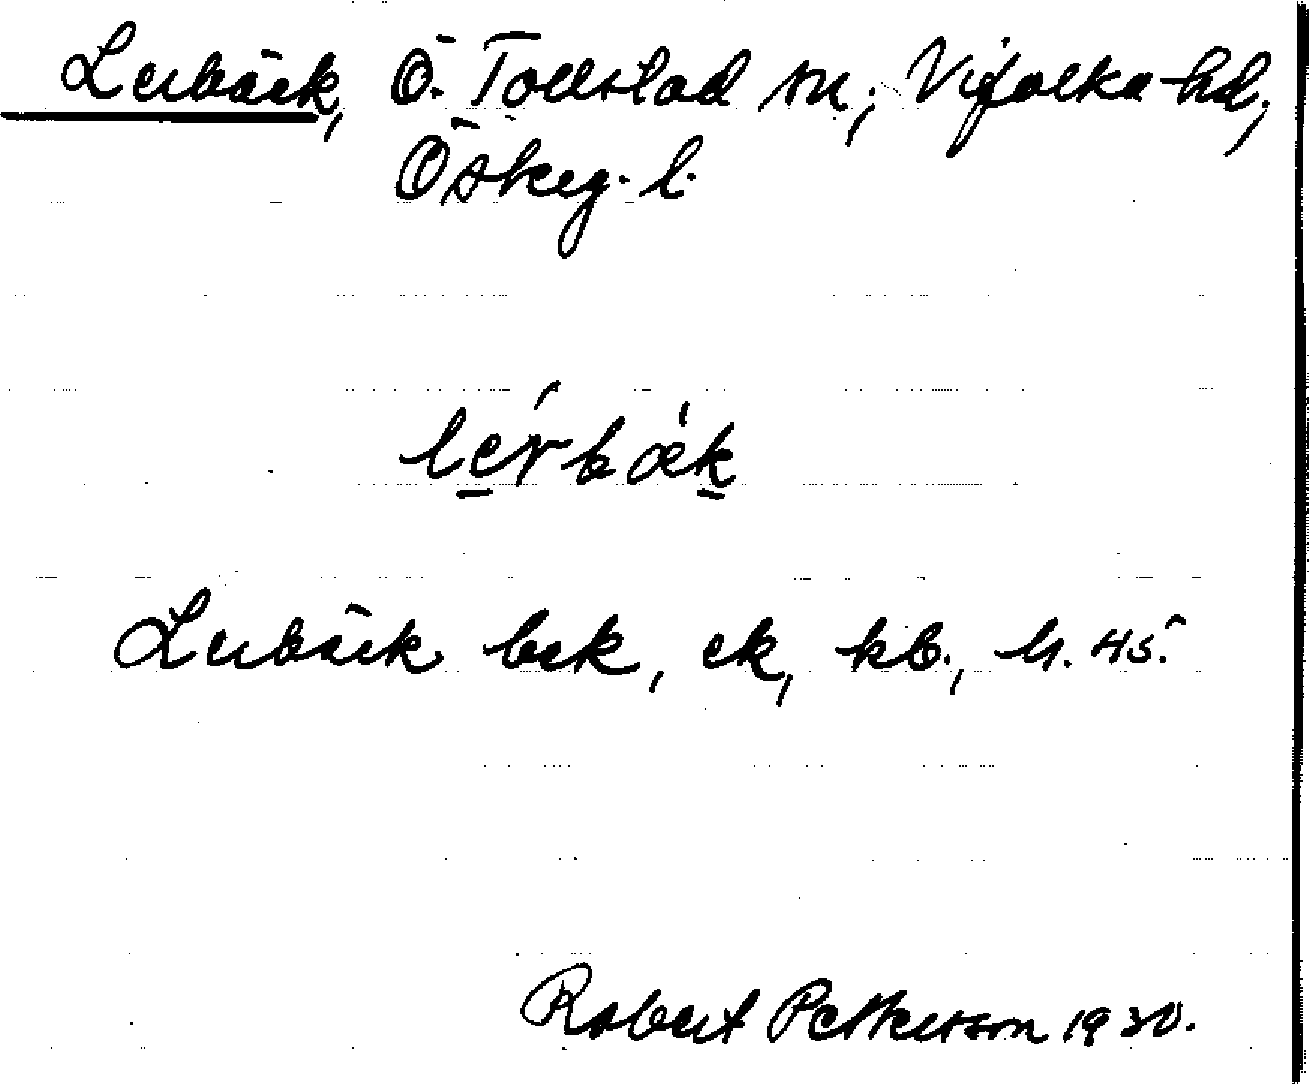 Lerbäck, Ö. Tollstad sn; Vifolka hd,
Östérg. l.
lèrbæ̀k
Lerbäck bek, ek, kb., h. 45.
Robert Petterson 1930.